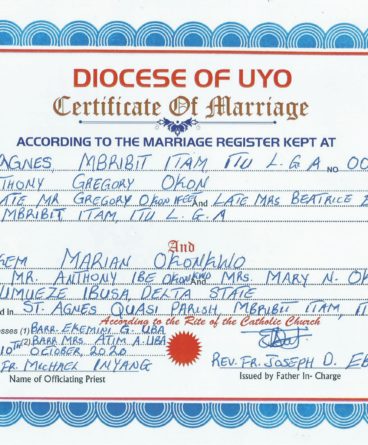 DIOCESE OF UYO
Certificate Of Marriage
ACCORDING TO THE MARRIAGE REGISTER KEPT AT
AGNES, MBRIBIT ITAM, ITU L.G.A NO 00
THONY GREGORY OKON
ATE MR GREGORY OKON And LATE MRS BEATRICE
MBRIBIT ITAM, ITU L.G.A
And
KEM MARIAN OKONKWO
MR. ANTHONY IBE OKONKWO And MRS. MARY N. OK
UMUEZE IBUSA, DELTA STATE
d in ST. AGNES QUASI PARISH, MBRIBIT ITAM, IT
According to the Rite of the Catholic Church
esses (1) BARR. EKEMINI G. UBA
(2) BARR MRS. ATIM A. UBA
10TH OCTOBER, 2020
FR. MICHAEL INYANG
REV. FR. JOSEPH D. E
Name of Officiating Priest
Issued by Father In- Charge